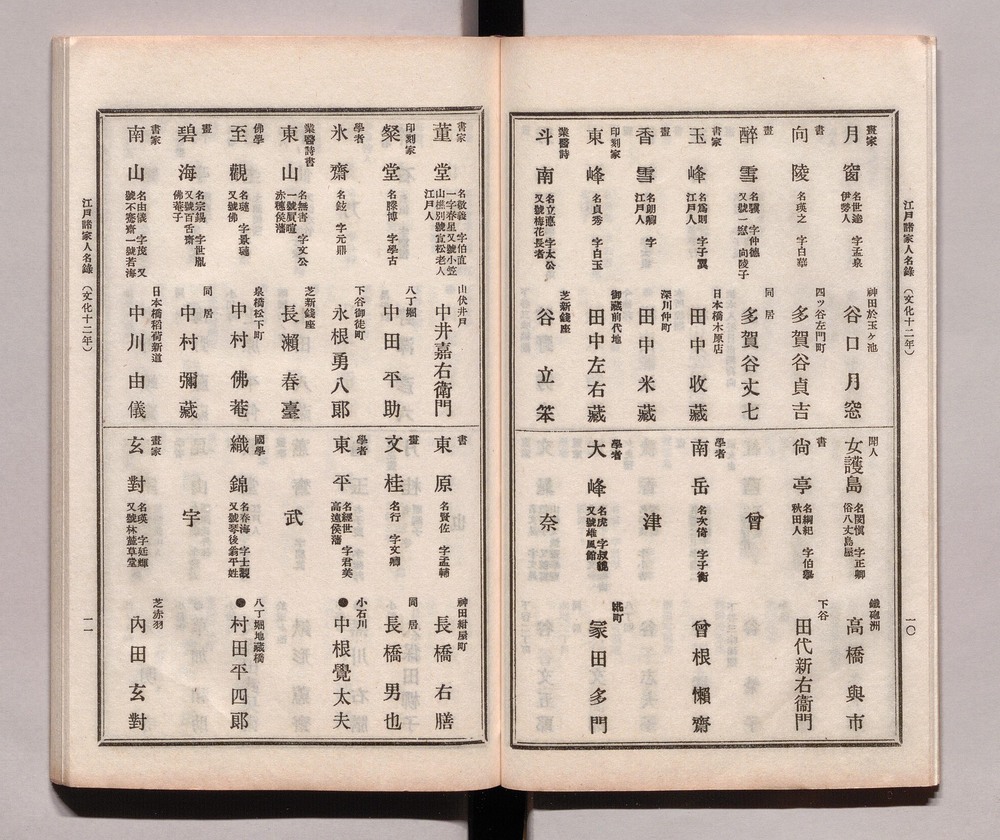 江戸諸家人名錄 (文化十二年)
一〇
畫家
月窗
名世達 字孟泉
伊勢人
神田於玉ヶ池
谷口月窓
書
向陵
名瑛之 字白華
四ッ谷左門町
多賀谷貞吉
畫
醉雪
名驥 字仲德
又號一窓 向陵子
同居
多賀谷丈七
書家
玉峰
名爲則 字子翼
江戸人
日本橋木原店
田中收藏
畫
香雪
江戸人
深川仲町
田中米藏
印刻家
東峰
名貞秀 字白玉
御藏前代地
田中左右藏
業醫詩
斗南
名立惠 字太公
又號梅花長者
芝新錢座
谷立笨
聞人
女護島
名閔愼 字正卿
俗八丈島屋
鐵砲洲
高橋與市
書
尙亭
名綱紀 字伯擧
秋田人
下谷
田代新右衞門
曾
學者
南岳
名次倚 字子衡
曾根懶齋
津
學者
大峰
名虎 字叔貔
又號雄風館
糀町
冡田多門
奈
書家
董堂
名敬義 字伯直
一字春星又號小笠
山樵別號宜松老人
江戸人
山伏井戸
中井嘉右衞門
印刻家
粲堂
名祿博 字學古
八丁堀
中田平助
學者
氷齋
名鉉 字元鼎
下谷御徒町
永根勇八郎
業醫詩書
東山
名無書 字文公
一號眞暄
赤穗侯藩
芝新錢座
長瀨春臺
佛學
至觀
名璉 字景璉
又號佛
泉橋松下町
中村佛菴
畫
碧海
名宗錫 字世胤
又號百舌齋
佛菴子
同居
中村彌藏
書家
南山
名由儀 字茂 又
號不蹇齋一號若海
日本橋稻荷新道
中川由儀
書
東原
名賢佐 字孟輔
神田紺屋町
長橋右膳
畫
文桂
名行 字文卿
同居
長橋男也
學者
東平
名經世 字君美
高遠侯藩
小石川
●中根覺太夫
武
國學
織錦
名春海 字士觀
又號琴後翁平姓
八丁堀地藏橋
●村田平四郎
宇
畫家
玄對
名瑛 字廷輝
又號林麓草堂
芝赤羽
內田玄對
江戸諸家人名錄 (文化十二年)
一一